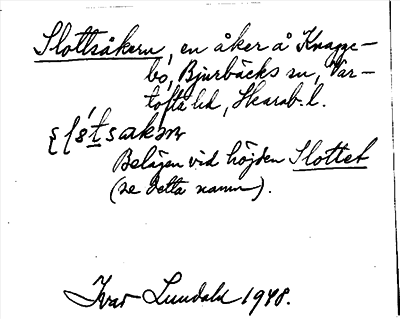 Slottsåkern, en åker å Knagge-
bo, Bjurbäcks sn, Var-
tofta hd, Skarab. l.
Belägen vid höjden Slottet
(se detta namn).
Ivar Lundahl 1948.